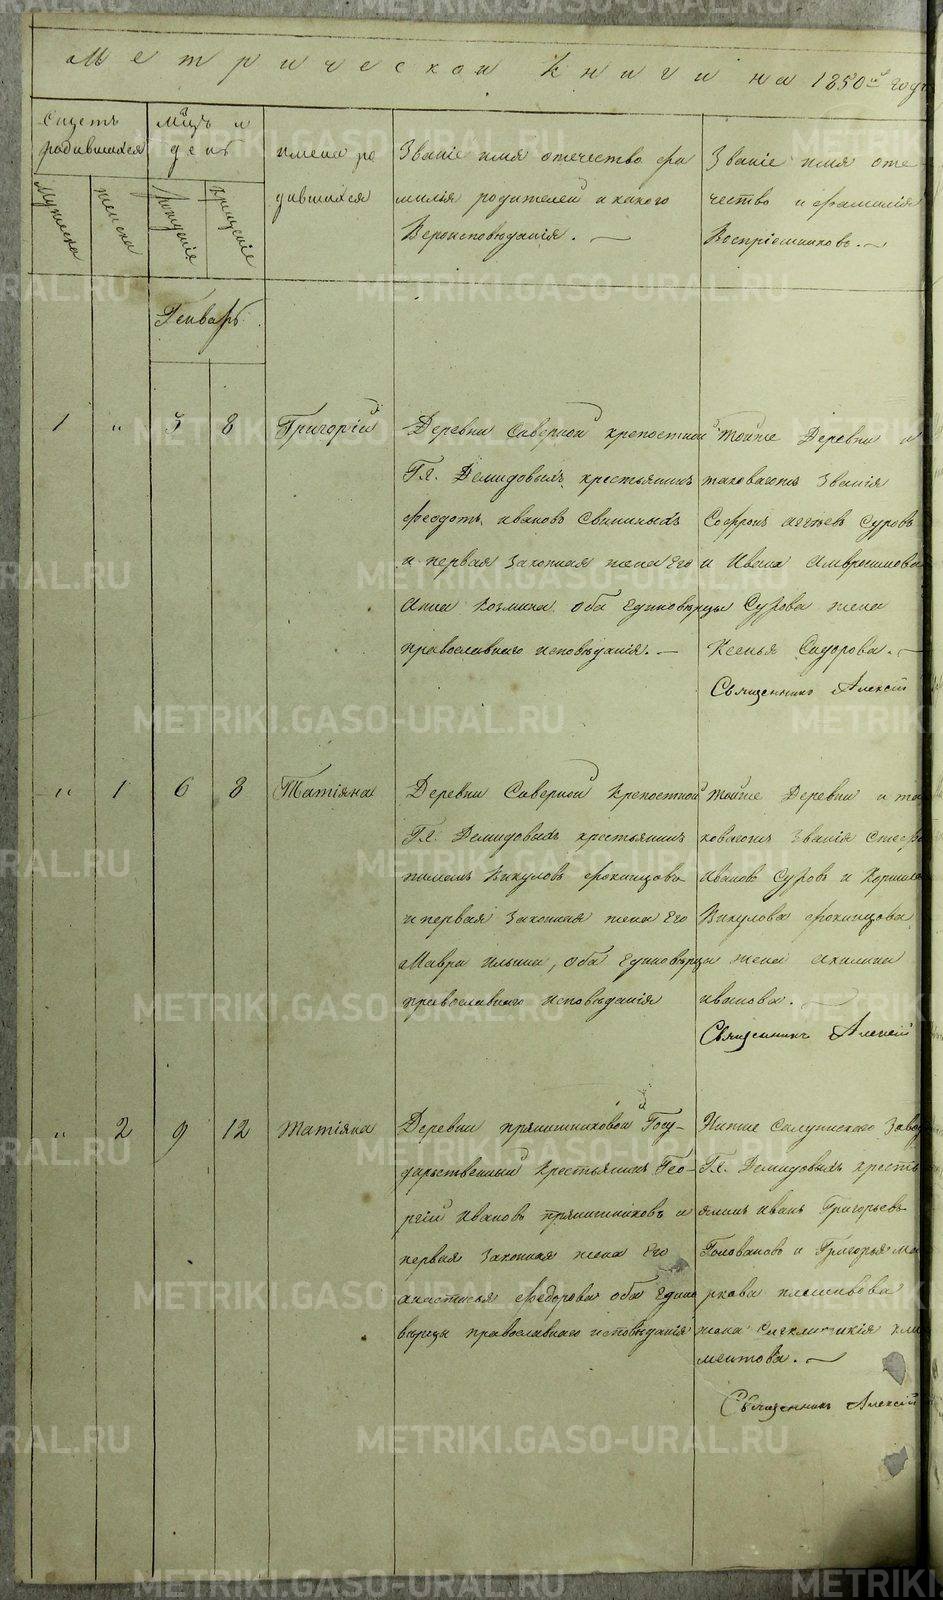 Метрической книги на 1850й годъ
Счетъ родившихся
Мужеска
женска
Мцъ и день
Рожденіе
Крещеніе
имена родившихся
Званіе имя отечество фа
милія родителей и какого
Вероисповѣданія. —
Званіе имя оте
чество и фамилія
Воспріемниковъ. —
Генварь
1 " 5 8 Григорій
Деревни Саверной крепостной
Гг. Демидовыхъ крестьянинъ
Феодотъ Ивановъ Свининыхъ
и первая законная жена его
Анна Козмина оба единовѣрцы
православнаго исповѣданія. —
тойже Деревни и
таковагожъ Званія
Софронъ Суровъ
и Ивана Амвросимова
Сурова жена
Ксенья Сидорова. —
Священникъ Алексій
" 1 6 8 Татіяна
Деревни Саверной крепостной
Гг. Демидовыхъ крестьянинъ
Пименъ Викуловъ
и первая Законная жена Его
Мавра Ильина, оба Единовѣрцы
православнаго исповѣданія
тойже Деревни и та
ковагожъ Званія
Ивановъ Суровъ и
Викулова
жена Акилина
иванова. —
Священникъ Алексій
" 2 9 12 татіяна
Деревни прянишниковой Госу-
дарственный Крестьянинъ Гео-
ргій Ивановъ прянишниковъ и
первая Законная жена Его
анастасья Федорова оба Едино
вѣрцы православнаго исповѣданія
Нижне Салдинскаго Завода
Гг. Демидовыхъ кресть
янинъ иванъ Григорьевъ
Головановъ и Григорья Ма
ркова
жена кли
ментова. —
Священникъ Алексій
METRIKI.GASO-URAL.RU